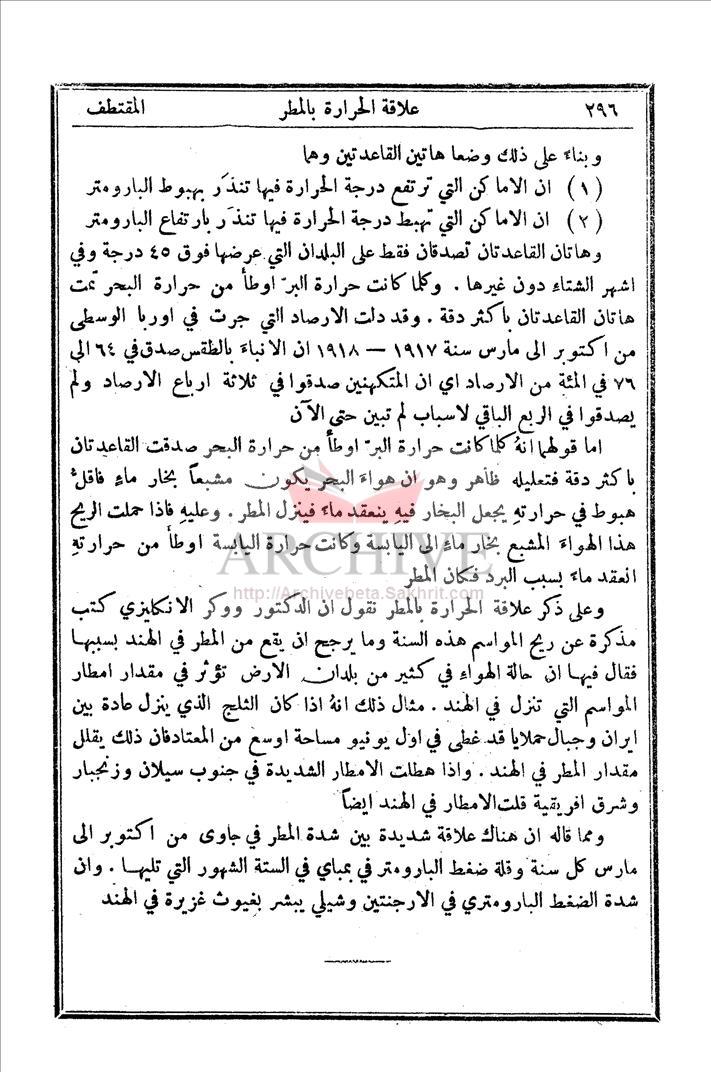 ٢٩٦ علاقة الحرارة بالمطر المقتطف
وبناءً على ذلك وضعا هاتين القاعدتين وهما
(١) ان الاماكن التي ترتفع درجة الحرارة فيها تنذَر بهبوط البارومتر
(٢) ان الاماكن التي تهبط درجة الحرارة فيها تنذَر بارتفاع البارومتر
وهاتان القاعدتان تصدقان فقط على البلدان التي عرضها فوق ٤٥ درجة وفي
اشهر الشتاء دون غيرها . وكلما كانت حرارة البرّ اوطأ من حرارة البحر تمّت
هاتان القاعدتان باكثر دقة . وقد دلت الارصاد التي جرت في اوربا الوسطى
من اكتوبر الى مارس سنة ١٩١٧ — ١٩١٨ ان الانباءَ بالطقس صدق في ٦٤ الى
٧٦ في المئة من الارصاد اي ان المتكهنين صدقوا في ثلاثة ارباع الارصاد ولم
يصدقوا في الربع الباقي لاسباب لم تبين حتى الآن
اما قولهما انهُ كلما كانت حرارة البرّ اوطأ من حرارة البحر صدقت القاعدتان
باكثر دقة فتعليله ظاهر وهو ان هواءَ البحر يكون مشبعاً بخار ماءٍ فاقلُّ
هبوط في حرارتهِ يجعل البخار فيهِ ينعقد ماءً فينزل المطر . وعليهِ فاذا حملت الريح
هذا الهواءَ المشبع بخار ماءٍ الى اليابسة وكانت حرارة اليابسة اوطأ من حرارتهِ
انعقد ماءً بسبب البرد فكان المطر
وعلى ذكر علاقة الحرارة بالمطر نقول ان الدكتور ووكر الانكليزي كتب
مذكرة عن ريح المواسم هذه السنة وما يرجح ان يقع من المطر في الهند بسببها
فقال فيها ان حالة الهواء في كثير من بلدان الارض تؤثر في مقدار امطار
المواسم التي تنزل في الهند . مثال ذلك انهُ اذا كان الثلج الذي ينزل عادة بين
ايران وجبال حملايا قد غطى في اول يونيو مساحة اوسع من المعتاد فان ذلك يقلل
مقدار المطر في الهند . واذا هطلت الامطار الشديدة في جنوب سيلان وزنجبار
وشرق افريقية قلت الامطار في الهند ايضاً
ومما قاله ان هناك علاقة شديدة بين شدة المطر في جاوى من اكتوبر الى
مارس كل سنة وقلة ضغط البارومتر في بمباي في الستة الشهور التي تليها . وان
شدة الضغط البارومتري في الارجنتين وشيلي يبشر بغيوث غزيرة في الهند
ARCHIVE
http://Archivebeta.Sakhrit.com